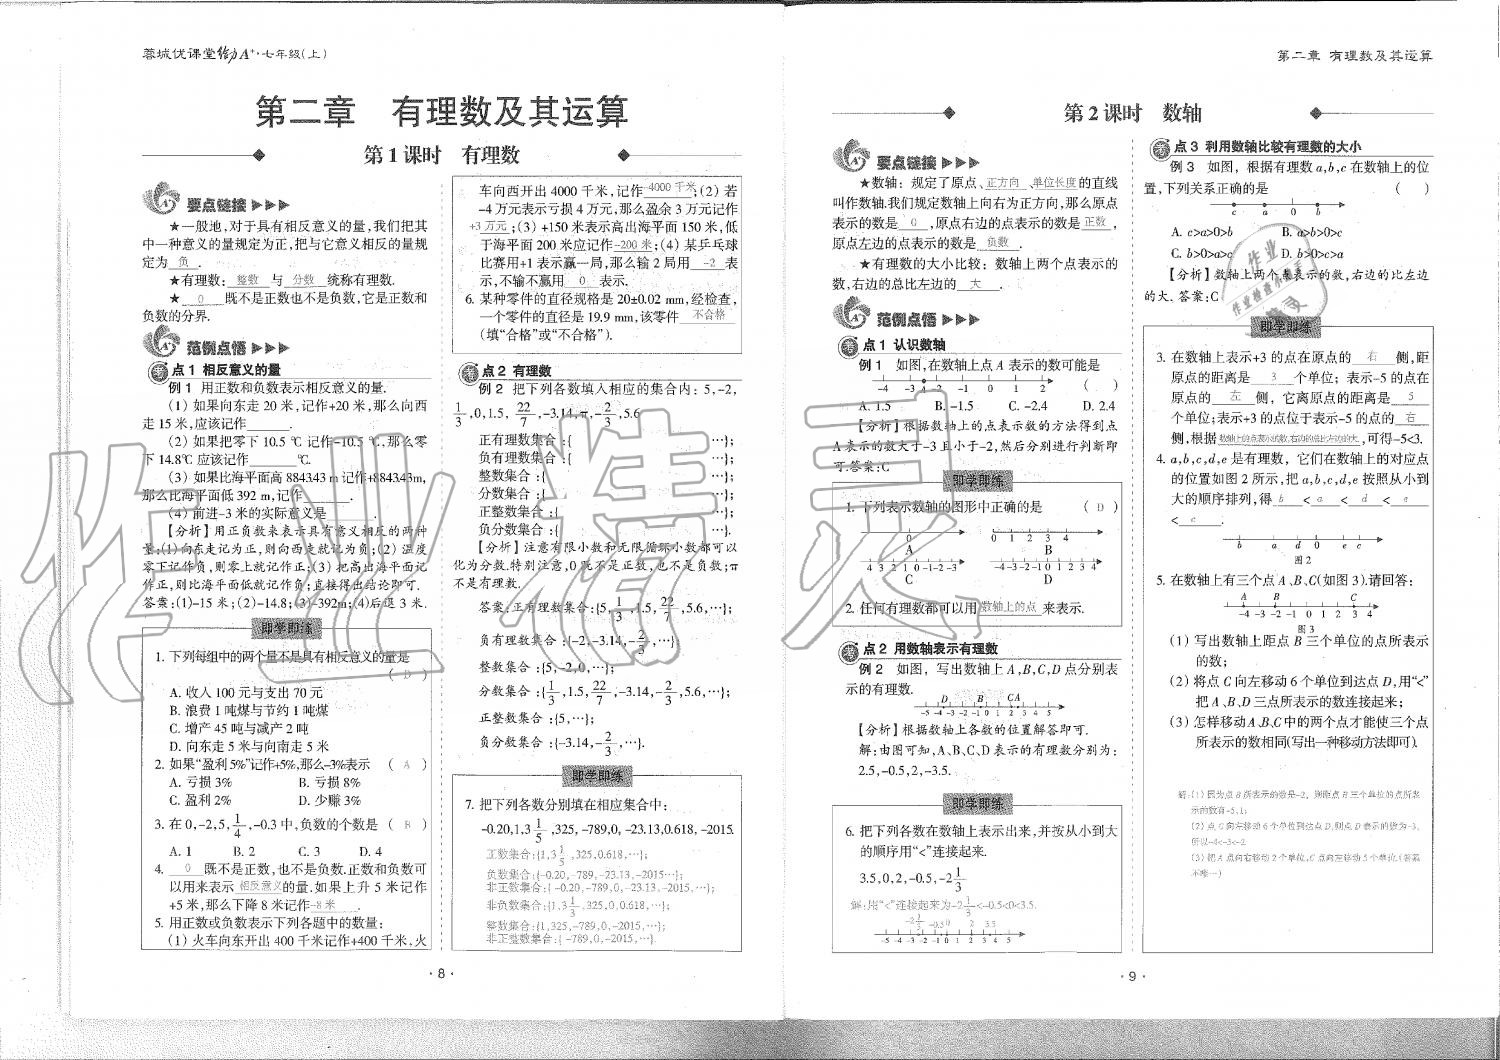 蓉城优课堂给力A⁺·七年级(上)
第二章　有理数及其运算
第1课时　有理数
要点链接
★一般地,对于具有相反意义的量,我们把其
中一种意义的量规定为正,把与它意义相反的量规
定为 负 .
★有理数: 整数 与 分数 统称有理数.
★ 0 既不是正数也不是负数,它是正数和
负数的分界.
范例点悟
考点1 相反意义的量
例1 用正数和负数表示相反意义的量.
(1)如果向东走20米,记作+20米,那么向西
走15米,应该记作______.
(2)如果把零下10.5℃记作-10.5℃,那么零
下14.8℃应该记作______℃.
(3)如果比海平面高8843.43m记作+8843.43m,
那么比海平面低392m,记作______.
(4)前进-3米的实际意义是______.
【分析】用正负数来表示具有意义相反的两种
量:(1)向东走记为正,则向西走就记为负;(2)温度
零下记作负,则零上就记作正;(3)把高出海平面记
作正,则比海平面低就记作负;直接得出结论即可.
答案:(1)-15米;(2)-14.8;(3)-392m;(4)后退3米.
即学即练
1. 下列每组中的两个量不是具有相反意义的量是
( D )
A. 收入100元与支出70元
B. 浪费1吨煤与节约1吨煤
C. 增产45吨与减产2吨
D. 向东走5米与向南走5米
2. 如果“盈利5%”记作+5%,那么-3%表示 ( A )
A. 亏损3% B. 亏损8%
C. 盈利2% D. 少赚3%
3. 在0,-2,5,1/4,-0.3中,负数的个数是 ( B )
A. 1 B. 2 C. 3 D. 4
4. 0 既不是正数,也不是负数.正数和负数可
以用来表示 相反意义 的量.如果上升5米记作
+5米,那么下降8米记作 -8米 .
5. 用正数或负数表示下列各题中的数量:
(1)火车向东开出400千米记作+400千米,火
车向西开出4000千米,记作 -4000千米 ;(2)若
-4万元表示亏损4万元,那么盈余3万元记作
+3万元 ;(3)+150米表示高出海平面150米,低
于海平面200米应记作 -200米 ;(4)某乒乓球
比赛用+1表示赢一局,那么输2局用 -2 表
示,不输不赢用 0 表示.
6. 某种零件的直径规格是20±0.02 mm,经检查,
一个零件的直径是19.9 mm,该零件 不合格
(填“合格”或“不合格”).
考点2 有理数
例2 把下列各数填入相应的集合内: 5,-2,
1/3,0,1.5,22/7,-3.14,π,-2/3,5.6
正有理数集合:{ …};
负有理数集合:{ …};
整数集合:{ …};
分数集合:{ …};
正整数集合:{ …};
负分数集合:{ …}.
【分析】注意有限小数和无限循环小数都可以
化为分数.特别注意,0既不是正数,也不是负数;π
不是有理数.
答案:正有理数集合:{5,1/3,1.5,22/7,5.6,…};
负有理数集合:{-2,-3.14,-2/3,…};
整数集合:{5,-2,0,…};
分数集合:{1/3,1.5,22/7,-3.14,-2/3,5.6,…};
正整数集合:{5,…};
负分数集合:{-3.14,-2/3,…}.
即学即练
7. 把下列各数分别填在相应集合中:
-0.20,1,3 1/5,325,-789,0,-23.13,0.618,-2015.
正数集合:{1,3 1/5,325,0.618,…};
负数集合:{-0.20,-789,-23.13,-2015…};
非正数集合:{-0.20,-789,0,-23.13,-2015,…};
非负数集合:{1,3 1/5,325,0,0.618,…};
整数集合:{1,325,-789,0,-2015,…};
非正整数集合:{-789,0,-2015,…}.
·8·
第二章 有理数及其运算
第2课时　数轴
要点链接
★数轴: 规定了原点、 正方向 、 单位长度 的直线
叫作数轴.我们规定数轴上向右为正方向,那么原点
表示的数是 0 ,原点右边的点表示的数是 正数 ,
原点左边的点表示的数是 负数 .
★有理数的大小比较: 数轴上两个点表示的
数,右边的总比左边的 大 .
范例点悟
考点1 认识数轴
例1 如图,在数轴上点A表示的数可能是
( )
-4 -3 -2 -1 0 1 2
A. 1.5 B. -1.5 C. -2.4 D. 2.4
【分析】根据数轴上的点表示数的方法得到点
A表示的数大于-3且小于-2,然后分别进行判断即
可.答案:C
即学即练
1. 下列表示数轴的图形中正确的是 ( D )
0
0 1 2 3 4
A B
4 3 2 1 0 -1 -2 -3
-4 -3 -2 -1 0 1 2 3 4
C D
2. 任何有理数都可以用 数轴上的点 来表示.
考点2 用数轴表示有理数
例2 如图, 写出数轴上A,B,C,D点分别表
示的有理数.
D B C A
-5 -4 -3 -2 -1 0 1 2 3 4 5
【分析】根据数轴上各数的位置解答即可.
解:由图可知,A、B、C、D表示的有理数分别为:
2.5,-0.5,2,-3.5.
即学即练
6. 把下列各数在数轴上表示出来,并按从小到大
的顺序用“<”连接起来.
3.5,0,2,-0.5,-2 1/3
解:用“<”连接起来为-2 1/3<-0.5<0<2<3.5.
-2 1/3 -0.5 0 2 3.5
-5 -4 -3 -2 -1 0 1 2 3 4 5
考点3 利用数轴比较有理数的大小
例3 如图, 根据有理数a,b,c在数轴上的位
置,下列关系正确的是 ( )
c a 0 b
A. c>a>0>b B. a>b>0>c
C. b>0>a>c D. b>0>c>a
【分析】数轴上两个点表示的数,右边的比左边
的大. 答案:C
即学即练
3. 在数轴上表示+3的点在原点的 右 侧,距
原点的距离是 3 个单位; 表示-5的点在
原点的 左 侧, 它离原点的距离是 5
个单位;表示+3的点位于表示-5的点的 右
侧,根据 数轴上的点表示的数,右边的总比左边的大 ,可得-5<3.
4. a,b,c,d,e是有理数, 它们在数轴上的对应点
的位置如图2所示,把a,b,c,d,e按照从小到
大的顺序排列,得 b < a < d < e
< c .
b a d 0 e c
图2
5. 在数轴上有三个点A、B、C(如图3).请回答:
A B C
-4 -3 -2 -1 0 1 2 3 4
图3
(1) 写出数轴上距点B三个单位的点所表示
的数;
(2) 将点C向左移动6个单位到达点D,用“<”
把A、B、D三点所表示的数连接起来;
(3) 怎样移动A、B、C中的两个点才能使三个点
所表示的数相同(写出一种移动方法即可).
解:(1)因为点B所表示的数是-2, 则距点B三个单位的点所表
示的数有-5,1;
(2)点C向左移动6个单位到达点D,则点D表示的数为-3,
所以-4<-3<-2.
(3)把A点向右移动2个单位,C点向左移动5个单位.(答案
不唯一)
·9·
作业精灵